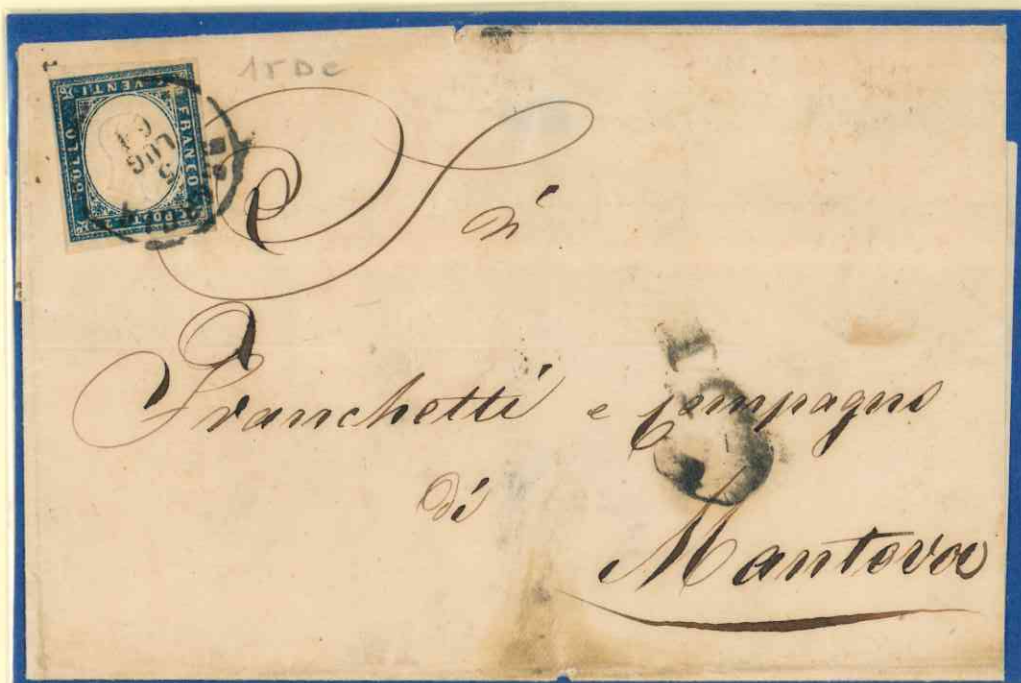 15 Dc
FRANCO
BOLLO
C. VENTI
C. POSTE 20
5
LUG
61
S ri
Franchetti e Compagno
di
Mantova